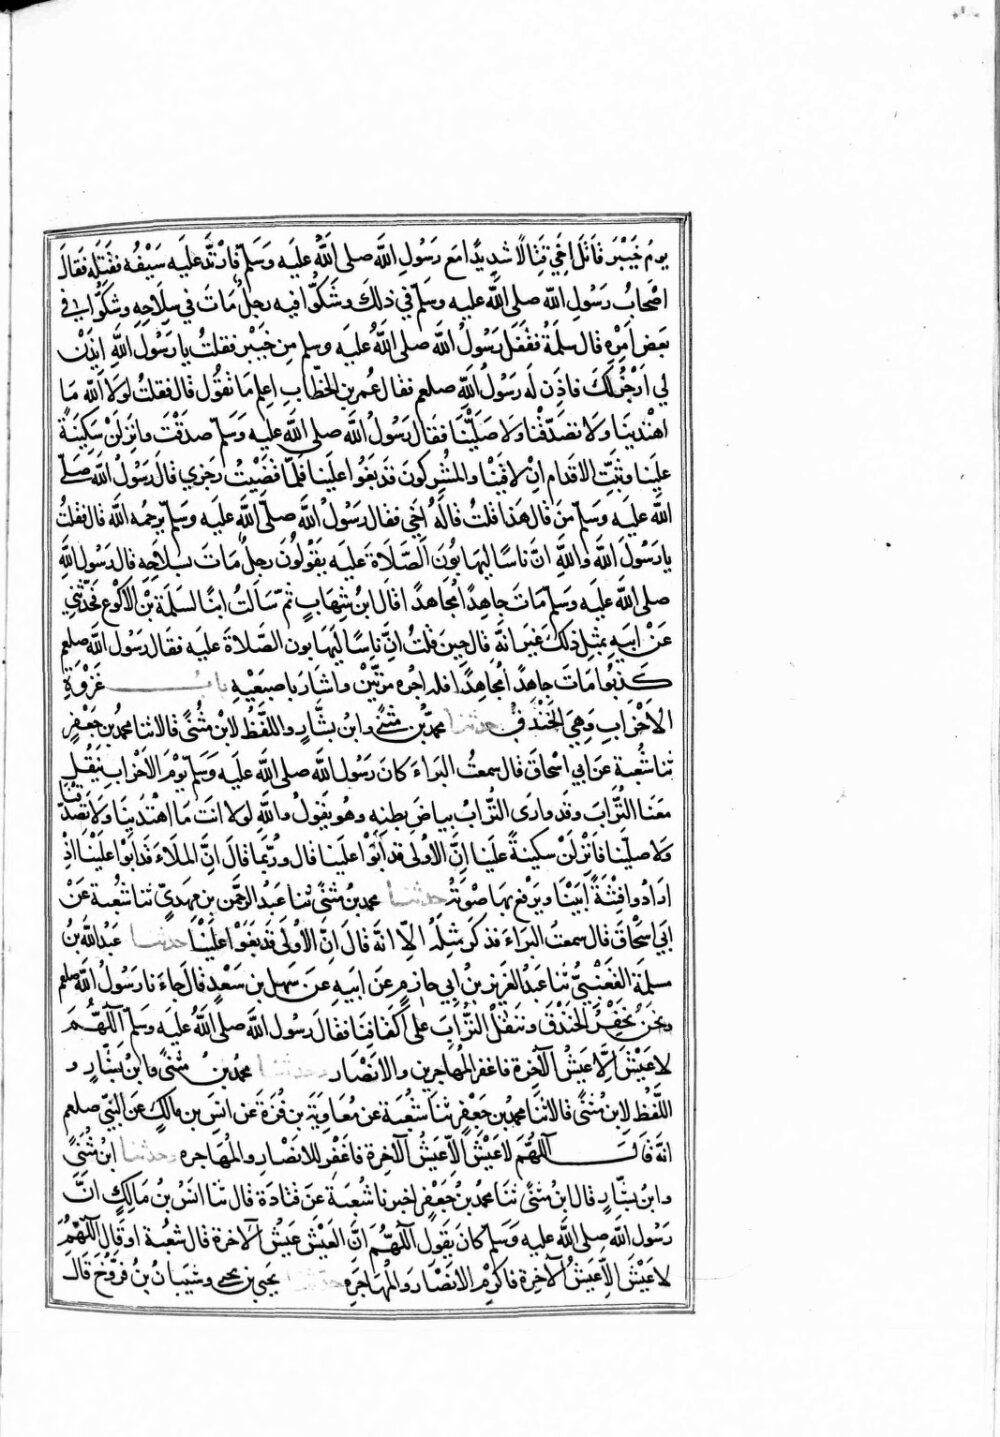 يومُ خَيْبَر قَاتَلَ اخِي قِتَالًا شديدًا مَع رَسُولِ اللَّه صلى اللَّه عليه وَسَلّم فَارْتَدَّ عليه سَيْفُه فقَتَله فَقالَ
اصْحابُ رَسُولِ اللّه صلى اللَّه عليه وسلّم في ذلك وشَكّوا فيه رجلٌ مَاتَ في سِلَاحِهِ وشكّوا في
بَعض امْرِه قال سلمةُ فقفل رَسُولُ اللَّه صلى اللَّه عليه وسلم مِن خَيْبَر فقلتُ يا رَسُول اللَّهِ ايذَنْ
لي ارْجُزْ لَكَ فاذِن لَه رَسُولُ اللَّهِ صلعم فقال عُمر بن الخطّابِ اعلم مَا تَقُول قال فقلتُ لولا اللَّه مَا
اهْتدينا ولا تصَدّقْنا ولا صَلّيْنَا فقال رَسُولُ اللّه صلى اللَّه عليه وَسَلّم صدَقْتَ وانزِلَنْ سَكِينَةً
علينا وثَبّتِ الاقدامَ انْ لاقَيْنا والمُشركونَ قد بَغَوا علينا فلمّا قضَيْتُ رَجَزي قالَ رَسُولُ اللَّه صَلّى
اللَّه عليه وَسَلّم مَن قالَ هَذا قلتُ قالَهُ اخي فقال رَسُولُ اللَّه صلّى اللَّه عليه وَسَلّم يرحمه اللَّه قال فقلتُ
يا رَسُولَ اللَّه واللَّهِ انّ ناسًا ليهَابُونَ الصَّلاةَ عليه يقولُونَ رجلٌ مَاتَ بسلاحِهِ قال رَسُول اللَّهِ
صلى اللَّه عليه وَسَلّم مَاتَ جاهِدًا مُجاهدًا قال ابنُ شهابٍ ثمّ سَألتُ ابنًا لسلمة بْن الاكْوع فحَدّثني
عَنْ ابيهِ مِثلَ ذلكَ غَير انّه قال حين قلتُ انّ ناسًا ليَهَابون الصَّلاةَ عليه فقال رَسُول اللَّه صلعم
كَذبُوا مَاتَ جاهِدًا مُجاهِدًا فله اجْره مرّتَيْن واشَارَ باصْبَعَيْهِ بابُ غَزْوَةِ
الاَحْزابِ وَهِيَ الخَنْدقُ حدثنا محمدُ بْن مُثنّى وابنُ بَشّارٍ واللفظُ لابْن مُثنًّى قالا ثنا محمدُ بن جَعْفرٍ
ثنا شُعبةُ عَن ابي اسْحاقَ قال سمعتُ البَراءَ كانَ رَسُول اللَّه صلى اللَّه عليه وَسَلّم يَوْمَ الاَحْزابِ يَنقُلُ
مَعَنا التُّرابَ وقد وارَى التُّرابُ بياضَ بطنه وهُو يَقولُ واللَّهِ لولا انتَ مَا اهْتدينا ولا تصَدّقْنا
ولا صلّينا فَانْزِلَنْ سكينةً عَلينا اِنَّ الاُولَى قد ابَوْا علينا قال ورُبّمَا قالَ انَّ الملاءَ قَد ابَوْا عَلينا اذَا
ارادُوا فِتْنَةً ابَيْنَا ويَرْفع بهَا صَوْتَهُ حدثنا محمد بنُ مثنًّى ثنا عَبدُ الرّحمن بن مهديٍّ ثنا شُعبة عَنْ
ابي اسْحاقَ قال سمعتُ البَراءَ فذكر مثلهُ الّا انّه قالَ انّ الاُولَى قد بَغَوْا علَيْنا حدثنا عَبدُ اللَّه بنُ
سلمةَ القَعْنَبِيُّ ثنا عَبدُ العَزيز بنُ ابي حازمٍ عَن ابيهِ عَن سَهل بن سَعْدٍ قال جَاءَنا رَسُولُ اللَّه صلعم
ونحنُ نَحْفِرُ الخَنْدقَ وننقُلُ التُّرابَ على اكتافِنا فقالَ رسول اللَّه صلى اللَّهُ عليه وَسَلّم اللَّهُمّ
لا عَيْشَ اِلّا عَيْشُ الآخِرةِ فاغفر للمُهاجرين والانْصَارِ وحدثنا محمّد بنُ مثنًّى وابنُ بشّارٍ و
اللّفْظُ لابنِ مُثنًّى قالا ثنا محمدُ بن جَعْفرٍ ثنا شعبَةُ عن مُعاويَة بن قُرّةَ عَن انَسِ بن مالكٍ عَن النّبيّ صلعم
انّه قَالَ اللَّهُمّ لا عَيْشَ اِلّا عَيْشُ الآخِرة فاغْفِر للانْصَارِ والمُهَاجره وحدثنا ابنُ مُثنًّى
وابنُ بشّارٍ قال ابنُ مثنًّى ثنا محمدُ بْنُ جَعْفرٍ اخبرنا شُعبَة عَن قتادَة قال ثنا انَسُ بْنُ مَالِكٍ انَّ
رَسُولَ اللَّه صلى اللَّه عليه وسَلّم كانَ يَقول اللّهُمّ انَّ العَيْشَ عَيْشُ الآخرة قال شعبة اوقَالَ اللَّهُمَّ
لا عَيْشَ اِلّا عَيْشُ الآخِرة فاكرم الانْصَارَ والمُهَاجرَه حدثنا يحيى بن يحيى وشيبَان بْنُ فرّوُخَ قَالَ